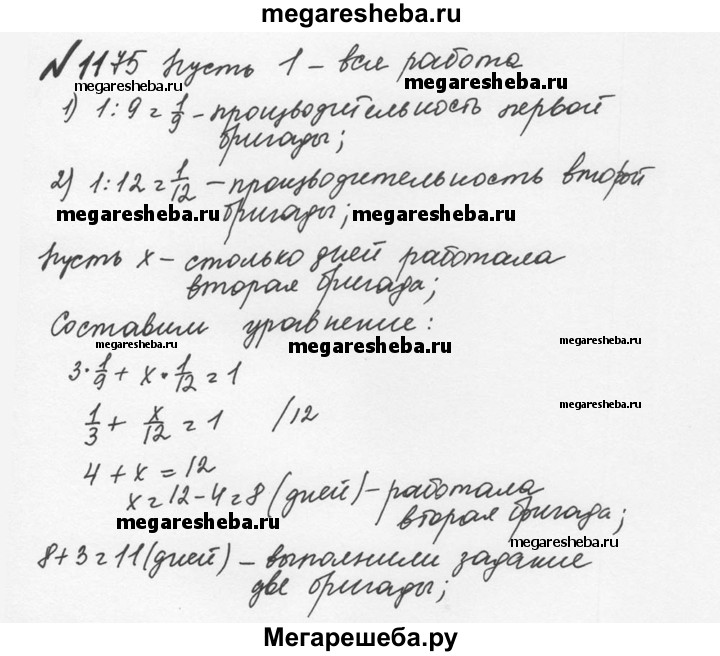 megaresheba.ru
№1175 Пусть 1 – вся работа
megaresheba.ru megaresheba.ru
1) 1:9=1/9 – производительность первой
бригады;
2) 1:12=1/12 – производительность второй
megaresheba.ru бригады; megaresheba.ru
Пусть x – столько дней работала
вторая бригада;
Составим уравнение:
megaresheba.ru megaresheba.ru megaresheba.ru
3·1/9+x·1/12=1
1/3+x/12=1 /12
megaresheba.ru
4+x=12
x=12-4=8 (дней) – работала
megaresheba.ru вторая бригада;
8+3=11(дней) – выполнили задание
megaresheba.ru
две бригады;
Мегарешеба.ру